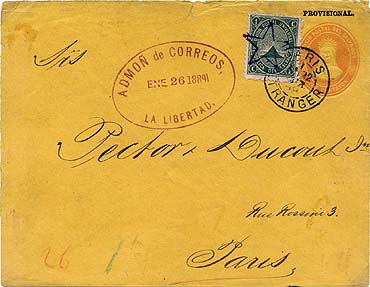 PROVISIONAL.
Srs
ADMON de CORREOS,
ENE 26 1889
LA LIBERTAD.
PARIS
ETRANGER
Pector & Ducout Jne
Rue Rossini 3.
Paris
26